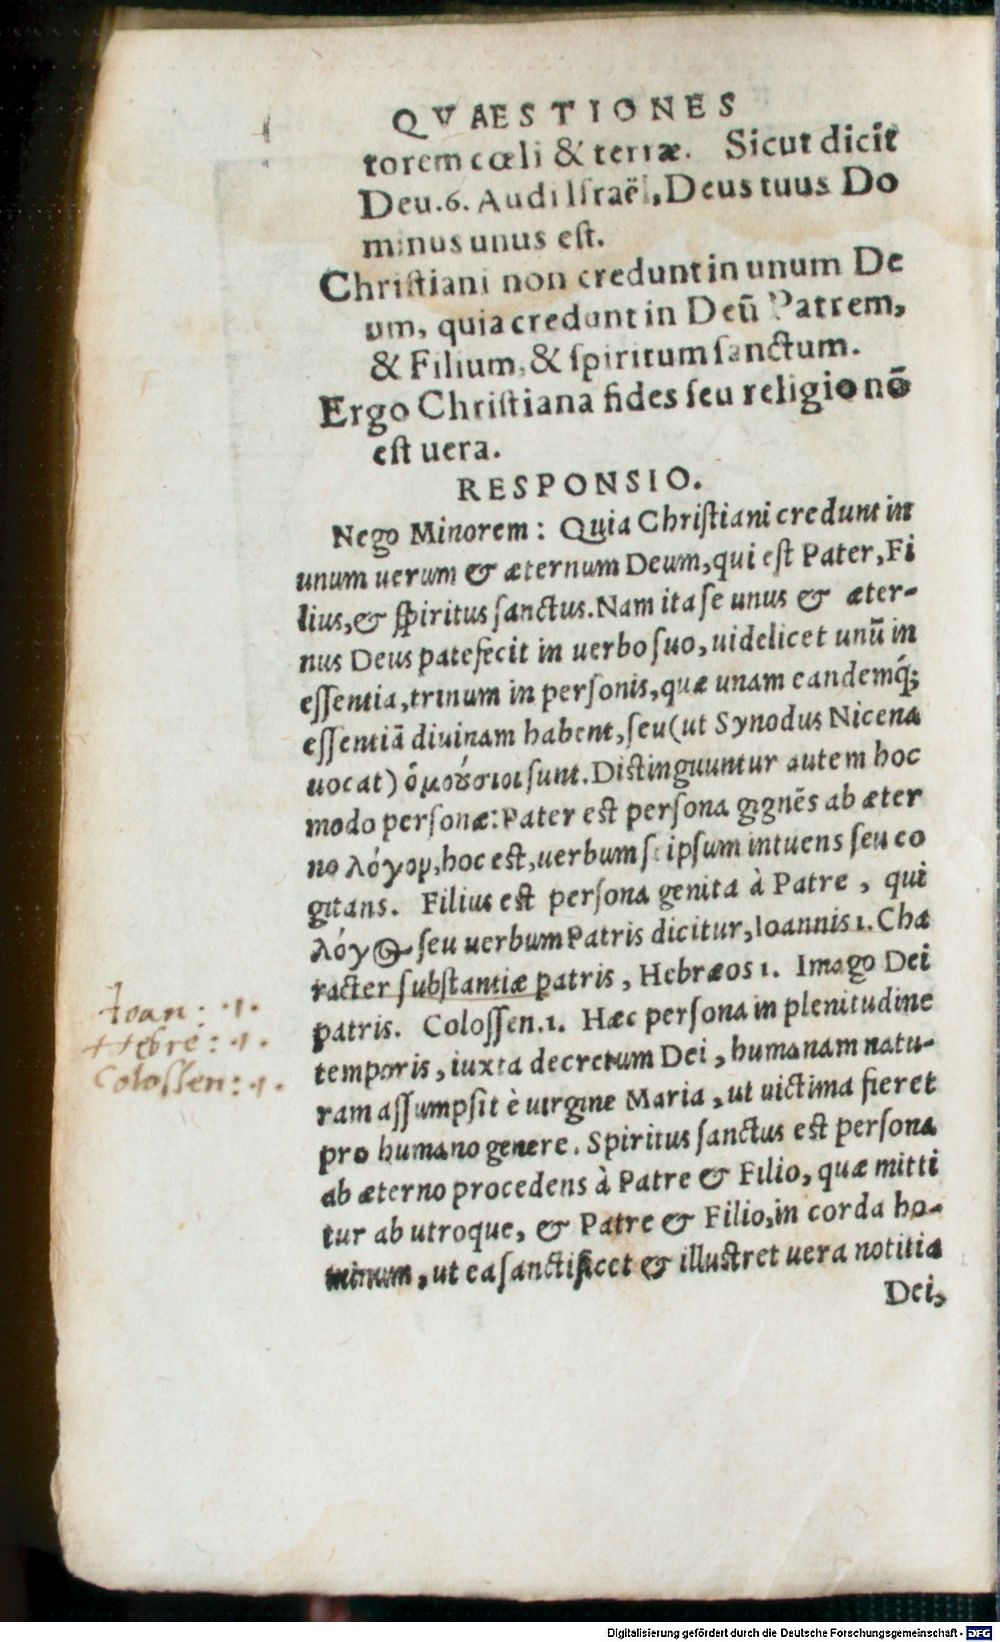 QVAESTIONES
torem cœli & terræ. Sicut dicit
Deu.6. Audi Israël, Deus tuus Do
minus unus est.
Christiani non credunt in unum De
um, quia credunt in Deū Patrem,
& Filium, & spiritum sanctum.
Ergo Christiana fides seu religio nō
est uera.
RESPONSIO.
Nego Minorem: Quia Christiani credunt in
unum uerum & æternum Deum, qui est Pater, Fi
lius, & spiritus sanctus. Nam ita se unus & æter-
nus Deus patefecit in uerbo suo, uidelicet unū in
essentia, trinum in personis, quæ unam eandemq́;
essentiā diuinam habent, seu (ut Synodus Nicena
uocat) ὁμούσιοι sunt. Distinguuntur autem hoc
modo personæ: Pater est persona gignēs ab æter
no λόγον, hoc est, uerbum seipsum intuens seu co
gitans. Filius est persona genita à Patre, qui
λόγος seu uerbum Patris dicitur, Ioannis 1. Cha
racter substantiæ patris, Hebræos 1. Imago Dei
patris. Colossen.1. Hæc persona in plenitudine
temporis, iuxta decretum Dei, humanam natu-
ram assumpsit è uirgine Maria, ut uictima fieret
pro humano genere. Spiritus sanctus est persona
ab æterno procedens à Patre & Filio, quæ mitti
tur ab utroque, & Patre & Filio, in corda ho-
minum, ut ea sanctificet & illustret uera notitia
Dei,
Ioan: .1.
Hebre: .1.
Colossen: .1.
Digitalisierung gefördert durch die Deutsche Forschungsgemeinschaft - DFG